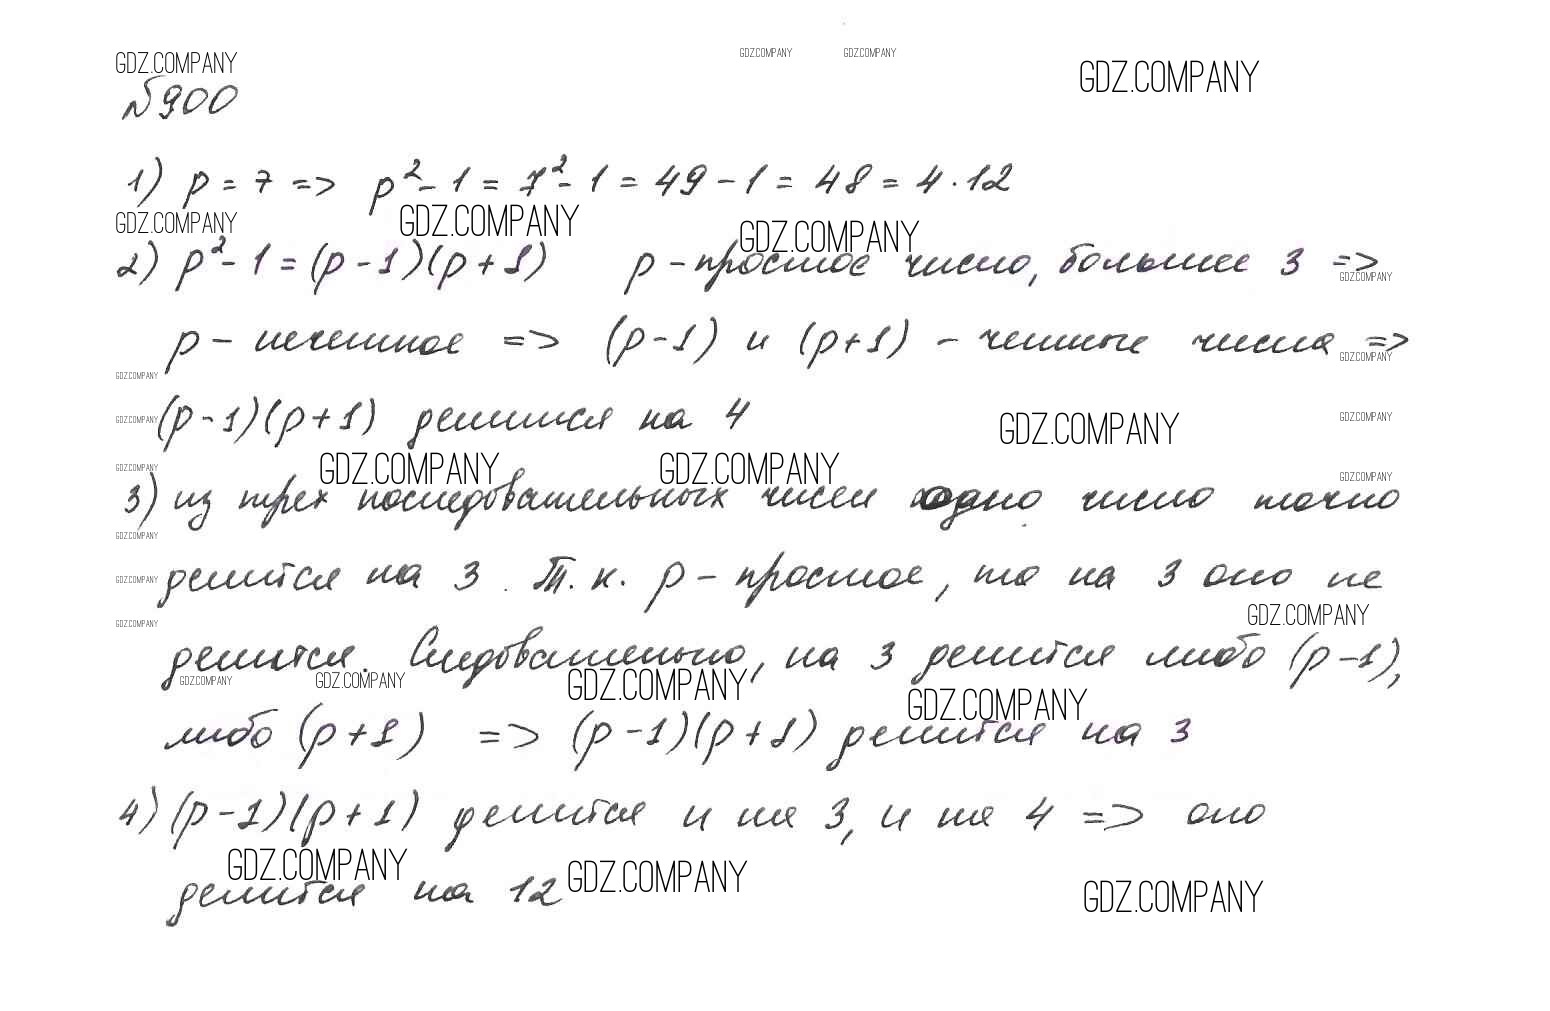 GDZ.COMPANY GDZ.COMPANY GDZ.COMPANY GDZ.COMPANY
№900
1) p = 7 => p² - 1 = 7² - 1 = 49 - 1 = 48 = 4 · 12
GDZ.COMPANY GDZ.COMPANY GDZ.COMPANY
2) p² - 1 = (p - 1)(p + 1) p - простое число, большее 3 =>
GDZ.COMPANY
p - нечетное => (p - 1) и (p + 1) - четные числа =>
GDZ.COMPANY
GDZ.COMPANY
GDZ.COMPANY (p - 1)(p + 1) делится на 4 GDZ.COMPANY GDZ.COMPANY
GDZ.COMPANY GDZ.COMPANY GDZ.COMPANY GDZ.COMPANY
3) из трех последовательных чисел одно число точно
GDZ.COMPANY
GDZ.COMPANY делится на 3. Т.к. p - простое, то на 3 оно не
GDZ.COMPANY GDZ.COMPANY
делится. Следовательно, на 3 делится либо (p - 1),
GDZ.COMPANY GDZ.COMPANY GDZ.COMPANY GDZ.COMPANY
либо (p + 1) => (p - 1)(p + 1) делится на 3
4) (p - 1)(p + 1) делится и на 3, и на 4 => оно
GDZ.COMPANY GDZ.COMPANY GDZ.COMPANY
делится на 12